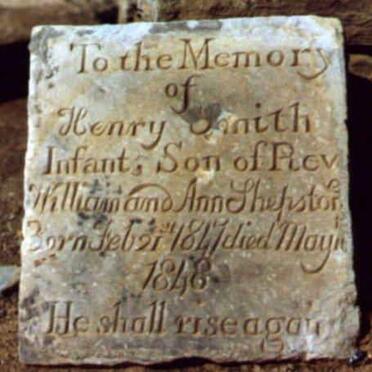 To the Memory
of
Henry Smith
Infant, Son of Rev
William and Ann Shepston
Born Feb 21st 1847 died May
1848
He shall rise again